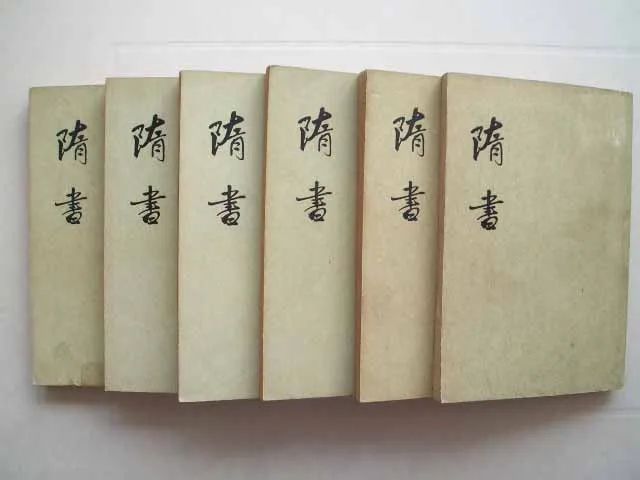 隋書
隋書
隋書
隋書
隋書
隋書